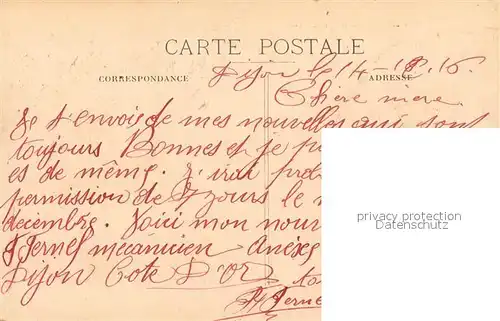 CARTE POSTALE
CORRESPONDANCE
ADRESSE
Dijon le 14-12.16
Chère mère
Je t'envois de mes nouvelles qui sont
toujours Bonnes et je
es de même. J'irai
permission de 7 jours le
décembre. Voici mon
mécanicien
Dijon Cote D'Or
privacy protection
Datenschutz